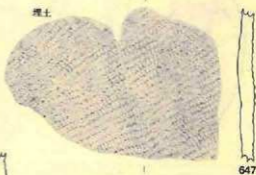 埋土
647